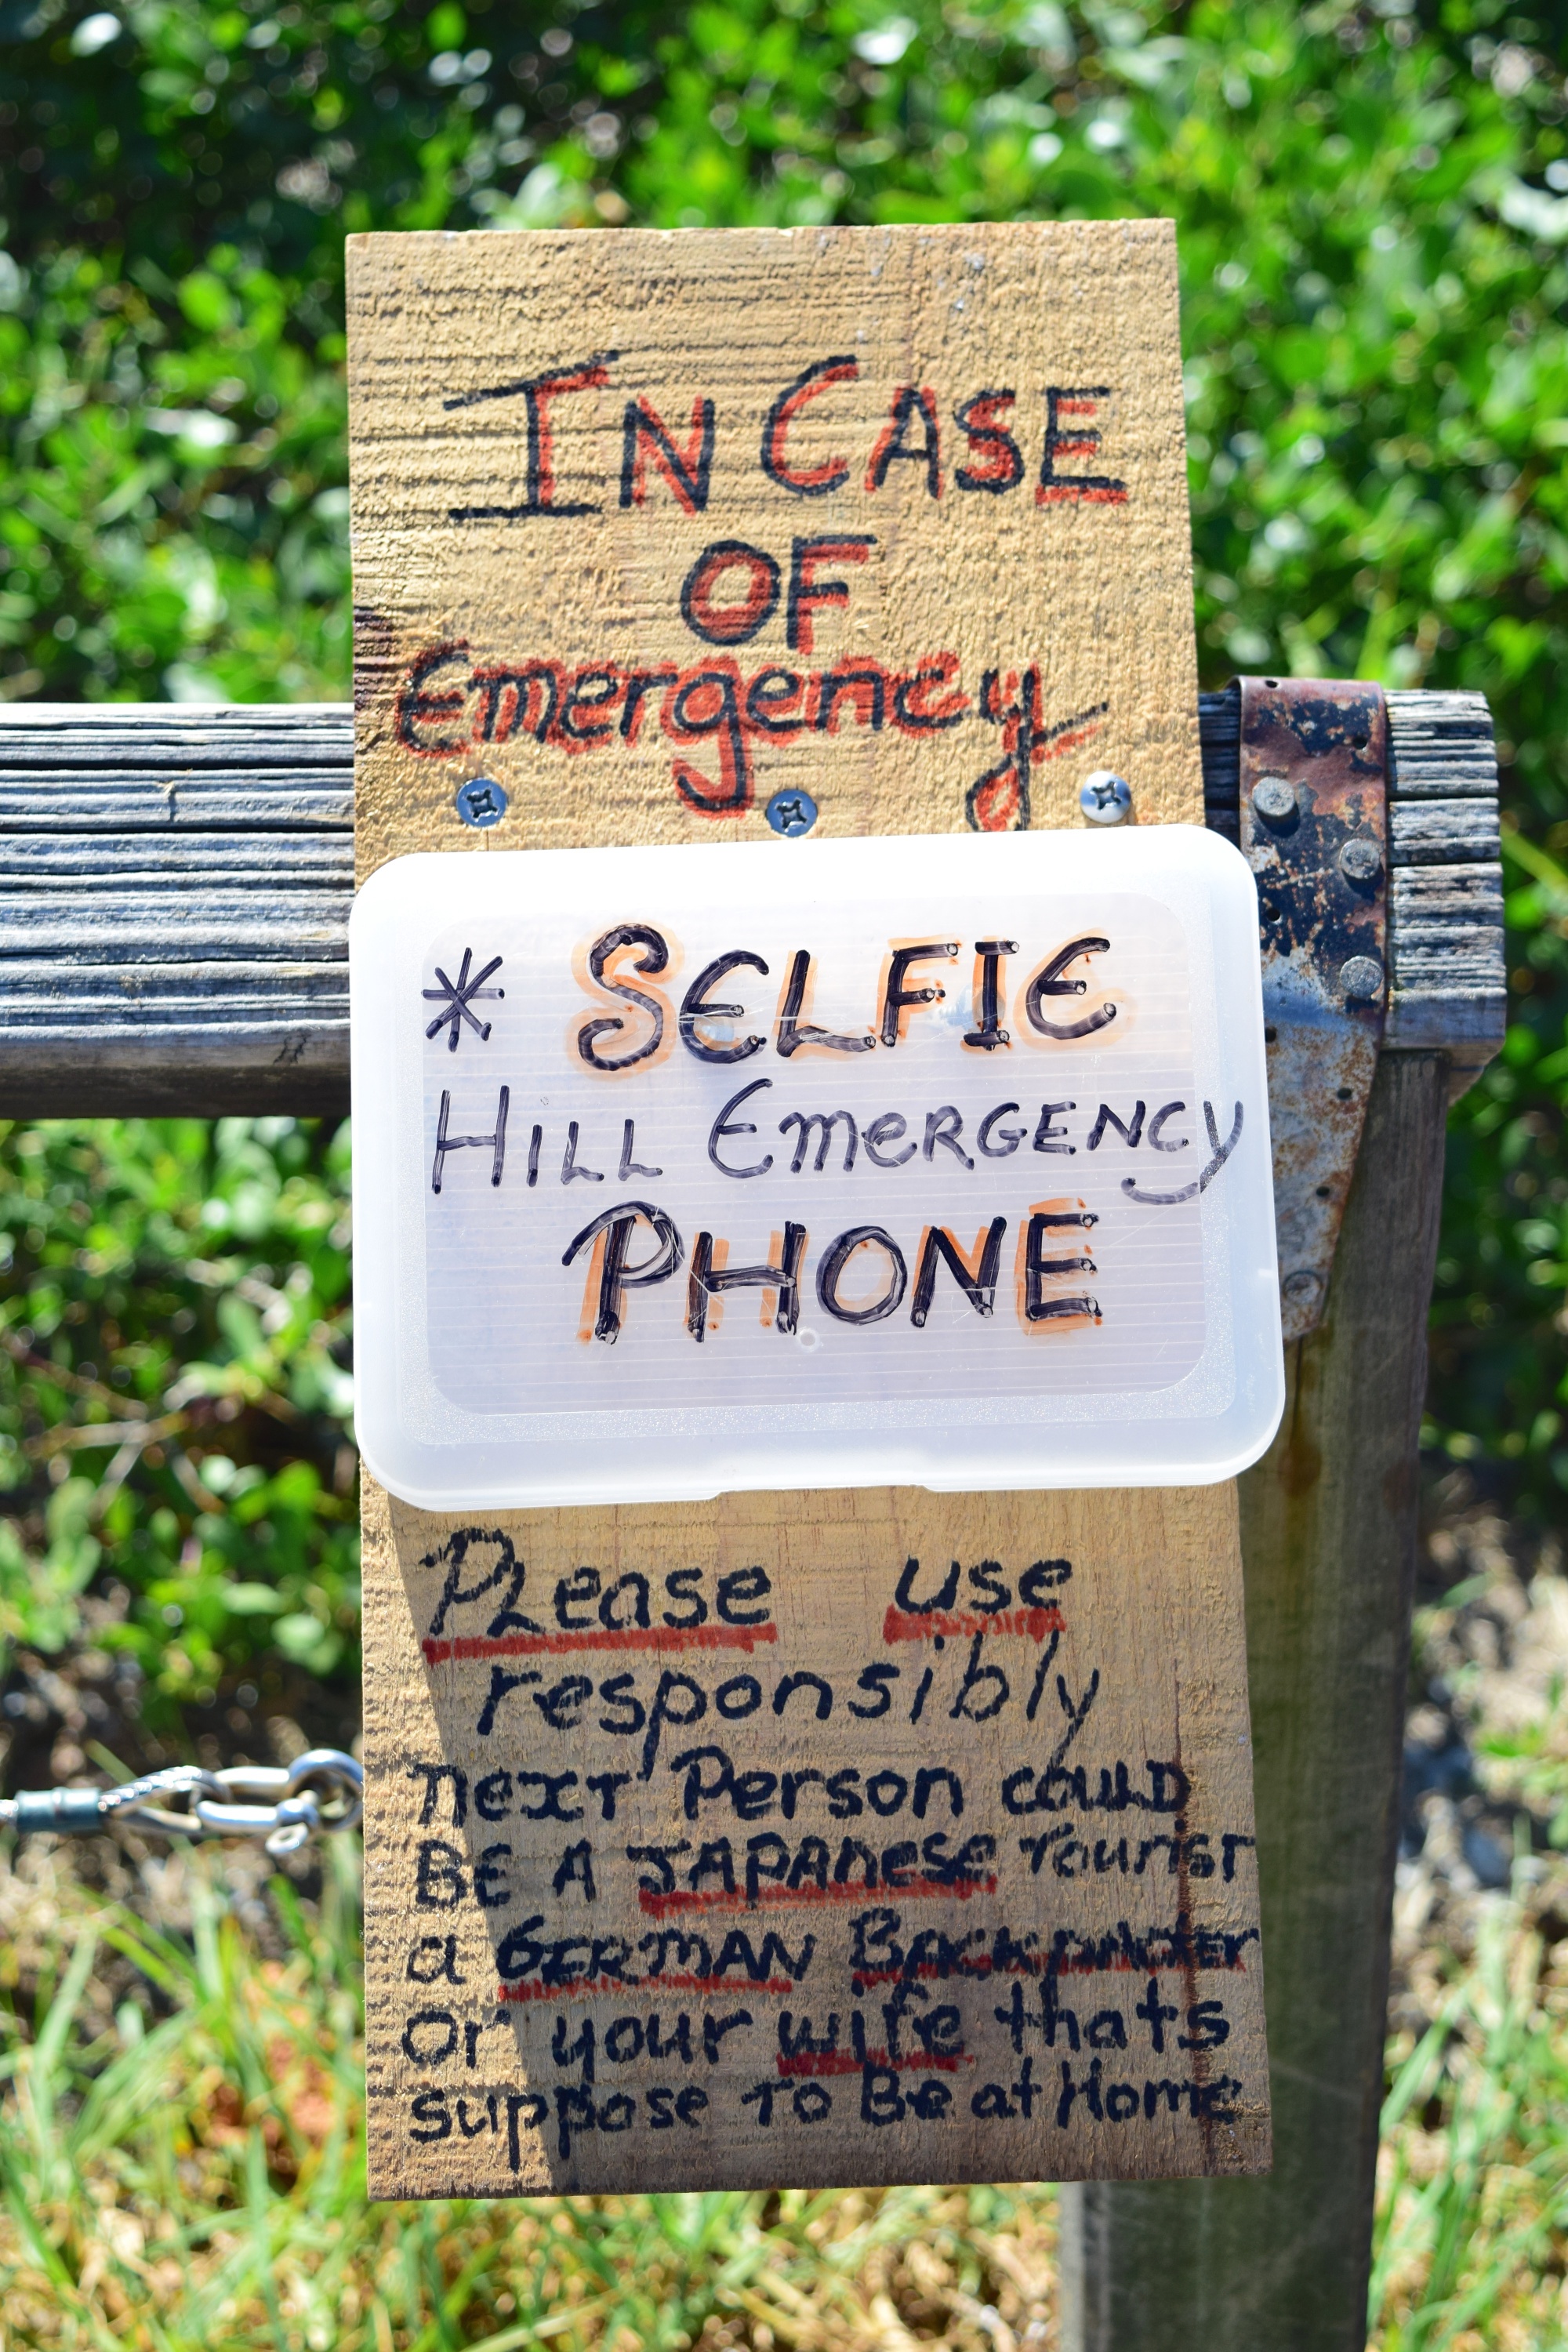 IN CASE
OF
Emergency
* SELFIE
HILL EMERGENCY
PHONE
PLease use
responsibly
next Person could
BE A JAPANESE Tourist
a GERMAN BACKpacker
or your wife thats
suppose To Be at Home